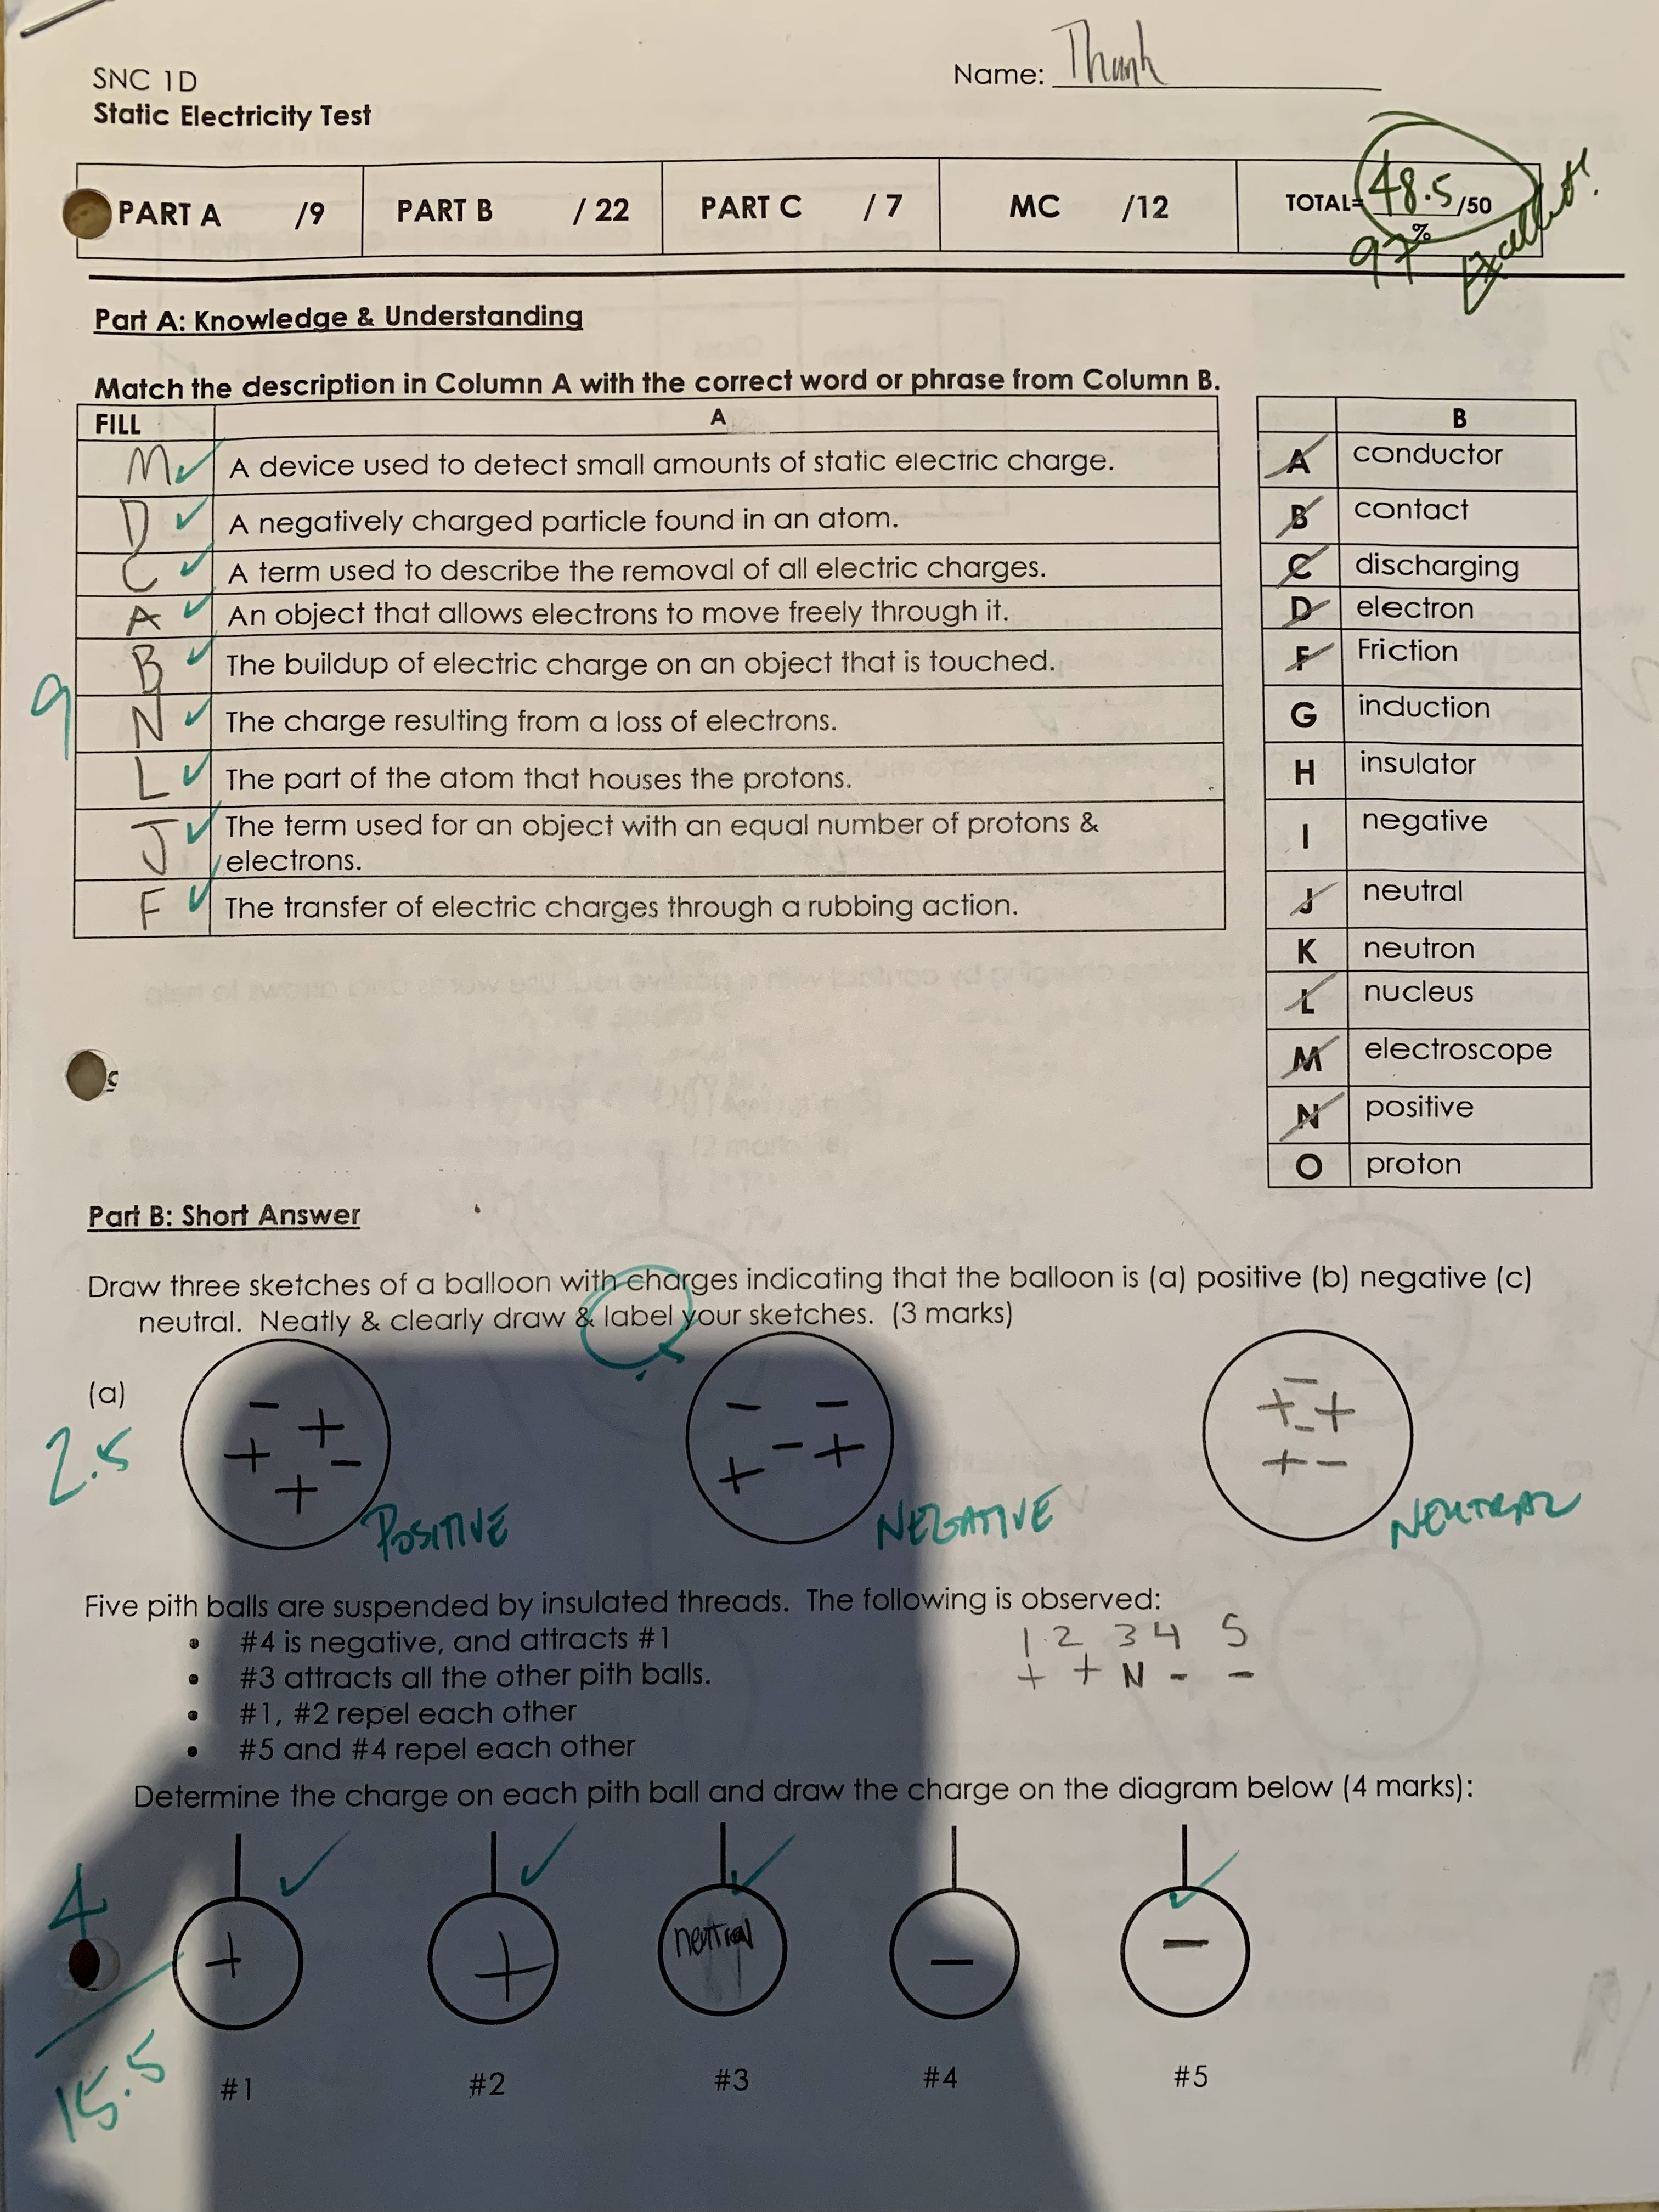 SNC 1D
Name: Thanh
Static Electricity Test
PART A /9
PART B / 22
PART C / 7
MC /12
TOTAL= 48.5 /50
97 %
Excellent!
Part A: Knowledge & Understanding
Match the description in Column A with the correct word or phrase from Column B.
FILL A
M A device used to detect small amounts of static electric charge.
D A negatively charged particle found in an atom.
C A term used to describe the removal of all electric charges.
A An object that allows electrons to move freely through it.
B The buildup of electric charge on an object that is touched.
N The charge resulting from a loss of electrons.
L The part of the atom that houses the protons.
J The term used for an object with an equal number of protons &
electrons.
F The transfer of electric charges through a rubbing action.
9
B
A conductor
B contact
C discharging
D electron
F Friction
G induction
H insulator
I negative
J neutral
K neutron
L nucleus
M electroscope
N positive
O proton
Part B: Short Answer
Draw three sketches of a balloon with charges indicating that the balloon is (a) positive (b) negative (c)
neutral. Neatly & clearly draw & label your sketches. (3 marks)
(a)
2.5
- + + - +
- - - + +
- + + - + -
POSITIVE
NEGATIVE
NEUTRAL
Five pith balls are suspended by insulated threads. The following is observed:
• #4 is negative, and attracts #1
• #3 attracts all the other pith balls.
• #1, #2 repel each other
• #5 and #4 repel each other
1 2 3 4 5
+ + N - -
Determine the charge on each pith ball and draw the charge on the diagram below (4 marks):
4
+ + neutral - -
15.5
#1 #2 #3 #4 #5